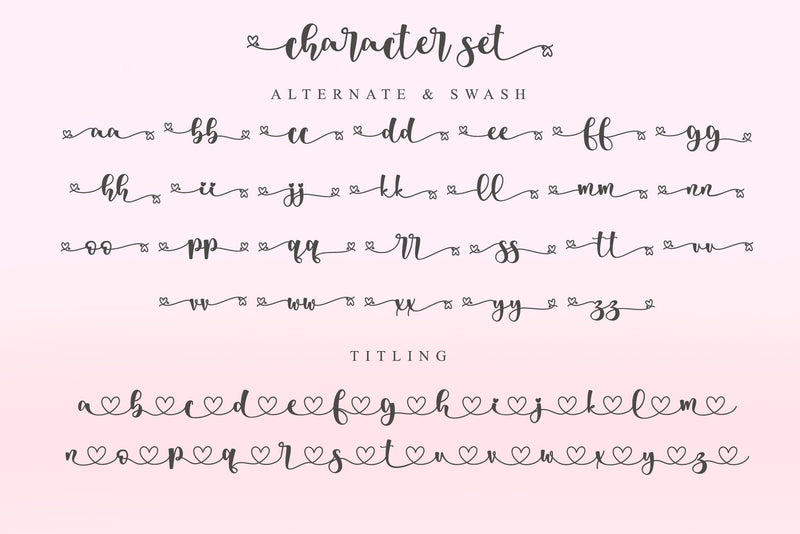 character set
ALTERNATE & SWASH
aa bb cc dd ee ff gg
hh ii jj kk ll mm nn
oo pp qq rr ss tt uu
vv ww xx yy zz
TITLING
a b c d e f g h i j k l m
n o p q r s t u v w x y z